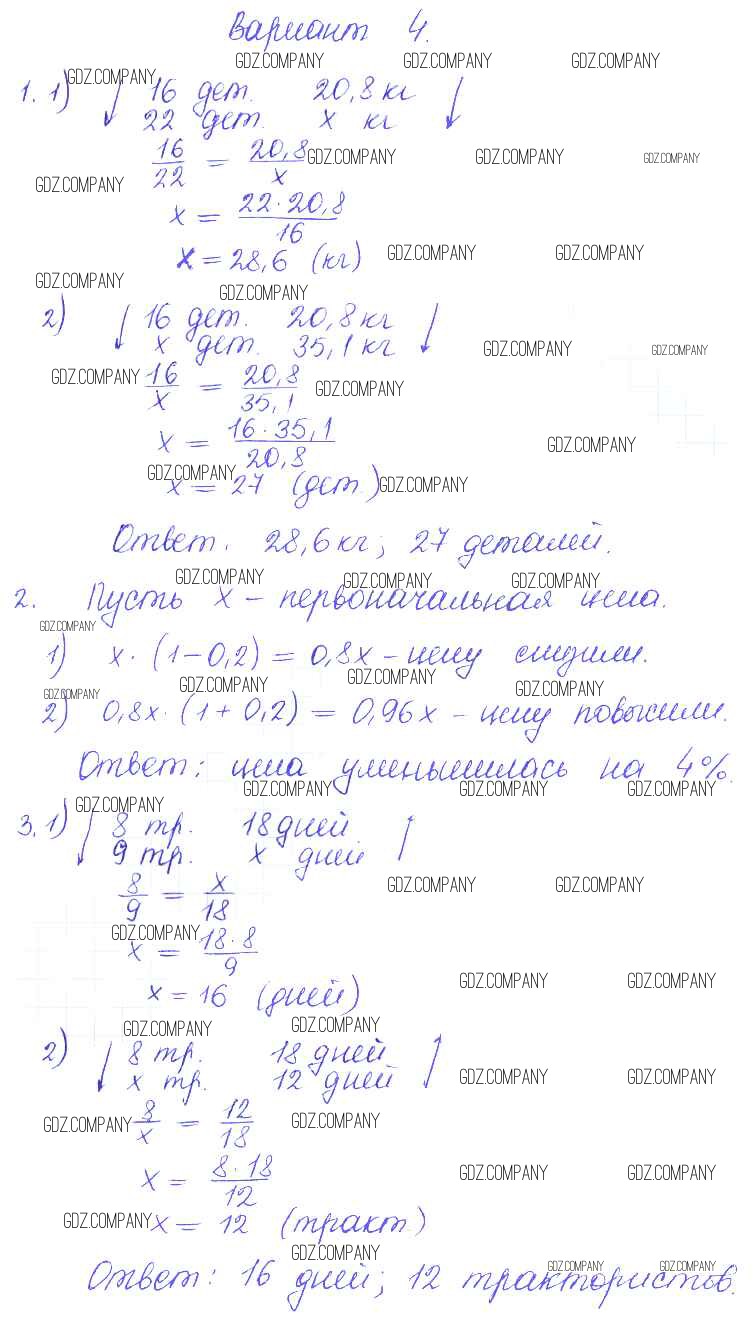 Вариант 4.
1. 1) ↓ 16 дет. 20,8 кг ↓
22 дет. x кг
16/22 = 20,8/x
x = 22·20,8/16
x = 28,6 (кг)
2) ↓ 16 дет. 20,8 кг ↓
x дет. 35,1 кг
16/x = 20,8/35,1
x = 16·35,1/20,8
x = 27 (дет.)
Ответ. 28,6 кг; 27 деталей.
2. Пусть x – первоначальная цена.
1) x·(1–0,2) = 0,8x – цену снизили.
2) 0,8x·(1+0,2) = 0,96x – цену повысили.
Ответ: цена уменьшилась на 4%.
3. 1) ↓ 8 тр. 18 дней ↑
9 тр. x дней
8/9 = x/18
x = 18·8/9
x = 16 (дней)
2) ↓ 8 тр. 18 дней ↑
x тр. 12 дней
8/x = 12/18
x = 8·18/12
x = 12 (тракт.)
Ответ: 16 дней; 12 трактористов.
GDZ.COMPANY